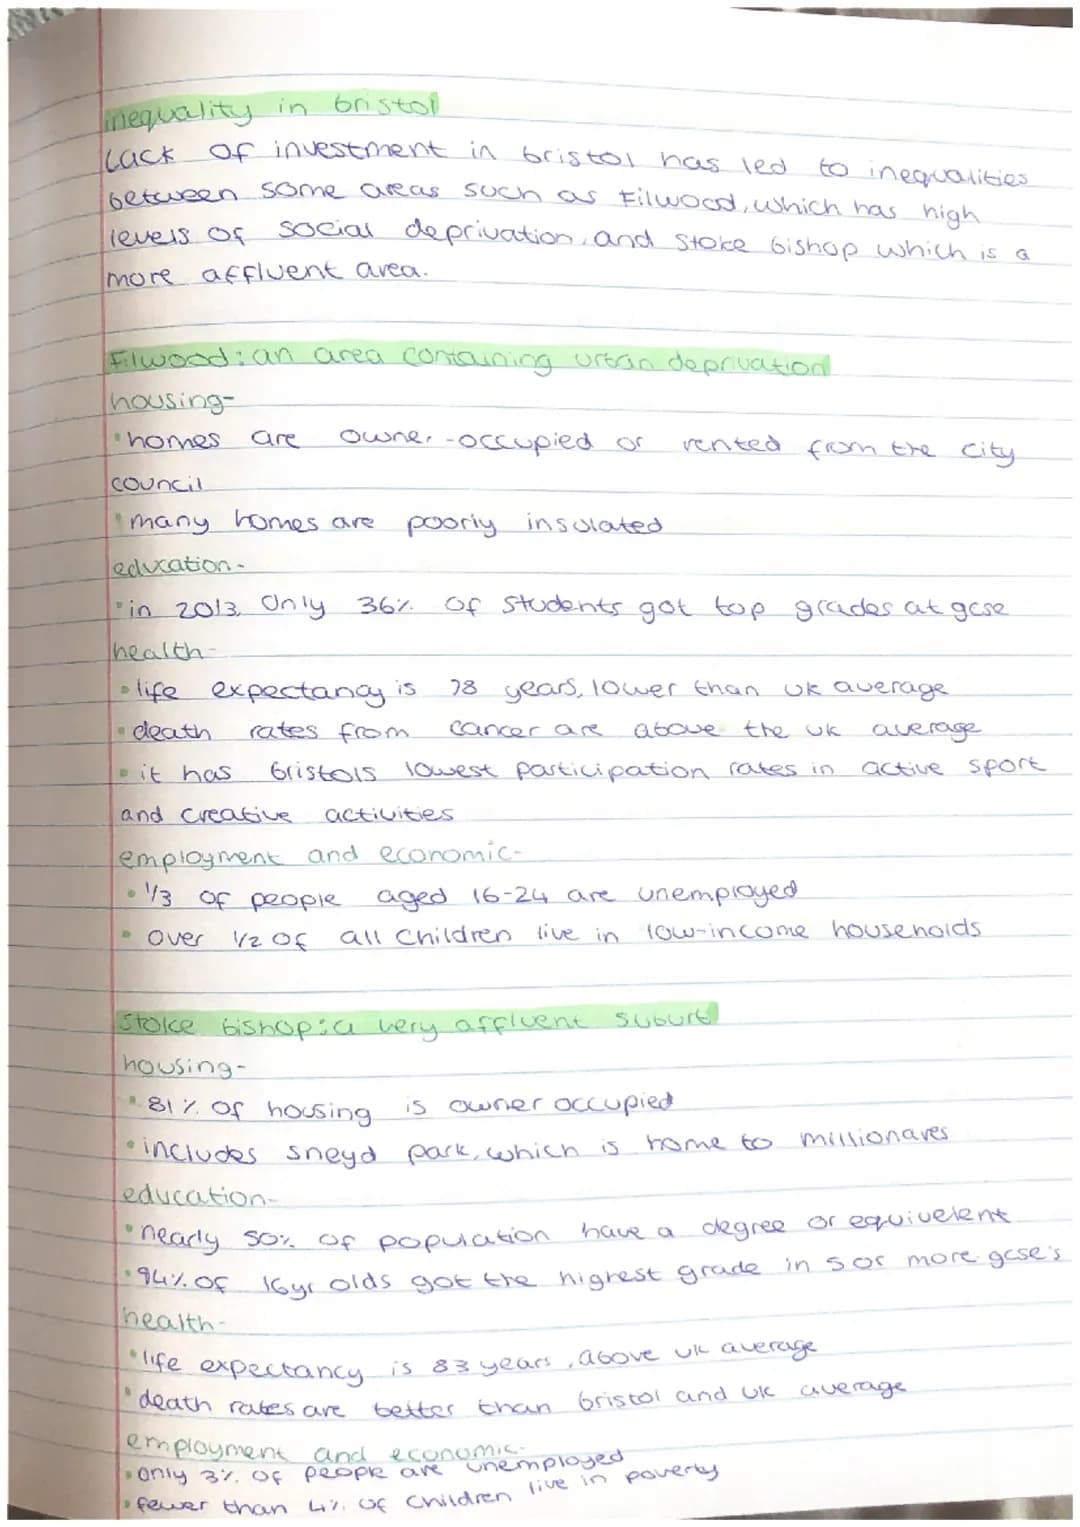 inequality in bristol
Lack of investment in bristol has led to inequalities
between some areas such as Filwood, which has high
levels of social deprivation, and stoke bishop which is a
more affluent area.
Filwood: an area containing urban deprivation
housing-
• homes are owner-occupied or rented from the city
council
• many homes are poorly insulated
education-
• in 2013, Only 36% of students got top grades at gcse
health-
• life expectancy is 78 years, lower than uk average
• death rates from cancer are above the uk average
• it has bristols lowest participation rates in active sport
and creative activities
employment and economic-
• 1/3 of people aged 16-24 are unemployed
• Over 1/2 of all children live in low-income households
Stoke bishop: a very affluent suburb
housing-
• 81% of housing is owner occupied
• includes sneyd park, which is home to millionares
education-
• nearly 50% of population have a degree or equivelent
• 94% of 16yr olds got the highest grade in 5 or more gcse's
health-
• life expectancy is 83 years, above uk average
• death rates are better than bristol and uk average
employment and economic-
• only 3% of people are unemployed
• fewer than 4% of children live in poverty